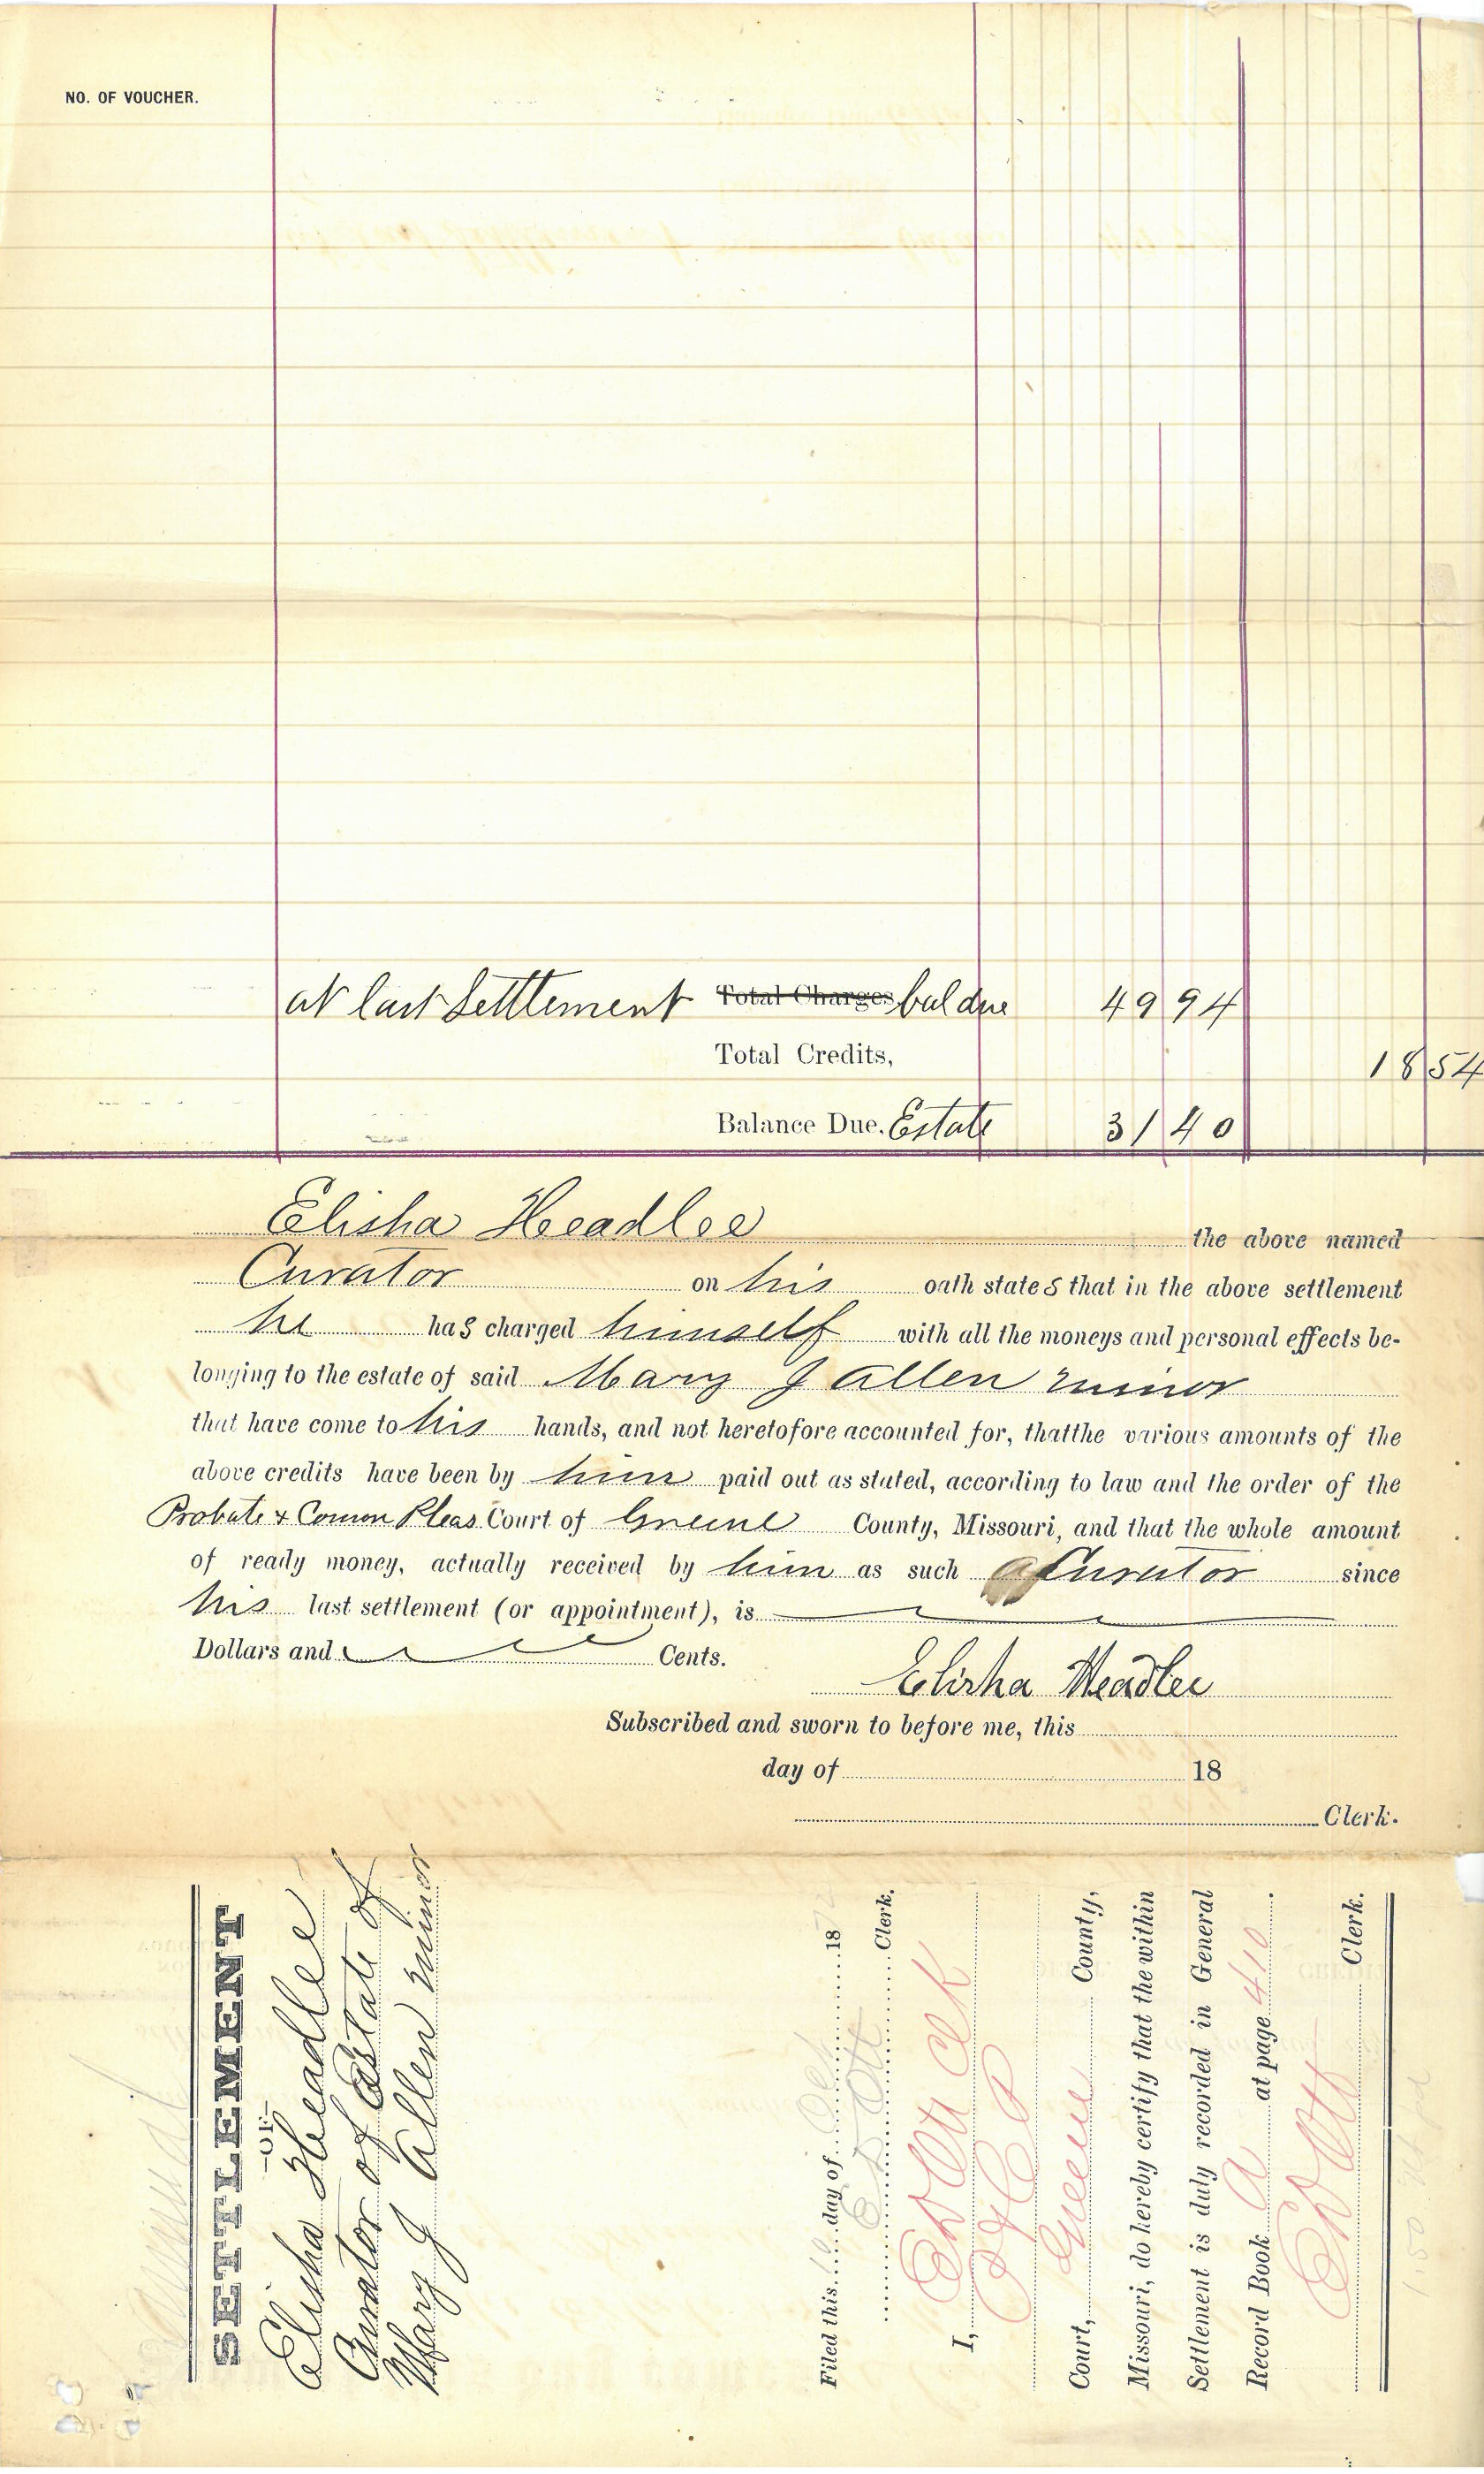 NO. OF VOUCHER.
at last Settlement Total Charges bal due 49 94
Total Credits, 18 54
Balance Due. Estate 31 40
Elisha Headlee the above named
Curator on his oath states that in the above settlement
he has charged himself with all the moneys and personal effects be-
longing to the estate of said Mary J Allen minor
that have come to his hands, and not heretofore accounted for, thatthe various amounts of the
above credits have been by him paid out as stated, according to law and the order of the
Probate & Comon Pleas Court of Greene County, Missouri, and that the whole amount
of ready money, actually received by him as such Curator since
his last settlement (or appointment), is
Dollars and Cents.
Elisha Headlee
Subscribed and sworn to before me, this
day of 18
Clerk.
SETTLEMENT
—OF—
Elisha Headlee
Curator of Estate of
Mary J Allen minor
Filed this day of Oct 187
Clerk.
I,
Court, Greene County,
Missouri, do hereby certify that the within
Settlement is duly recorded in General
Record Book A at page 410
Clerk.
1.50 pd